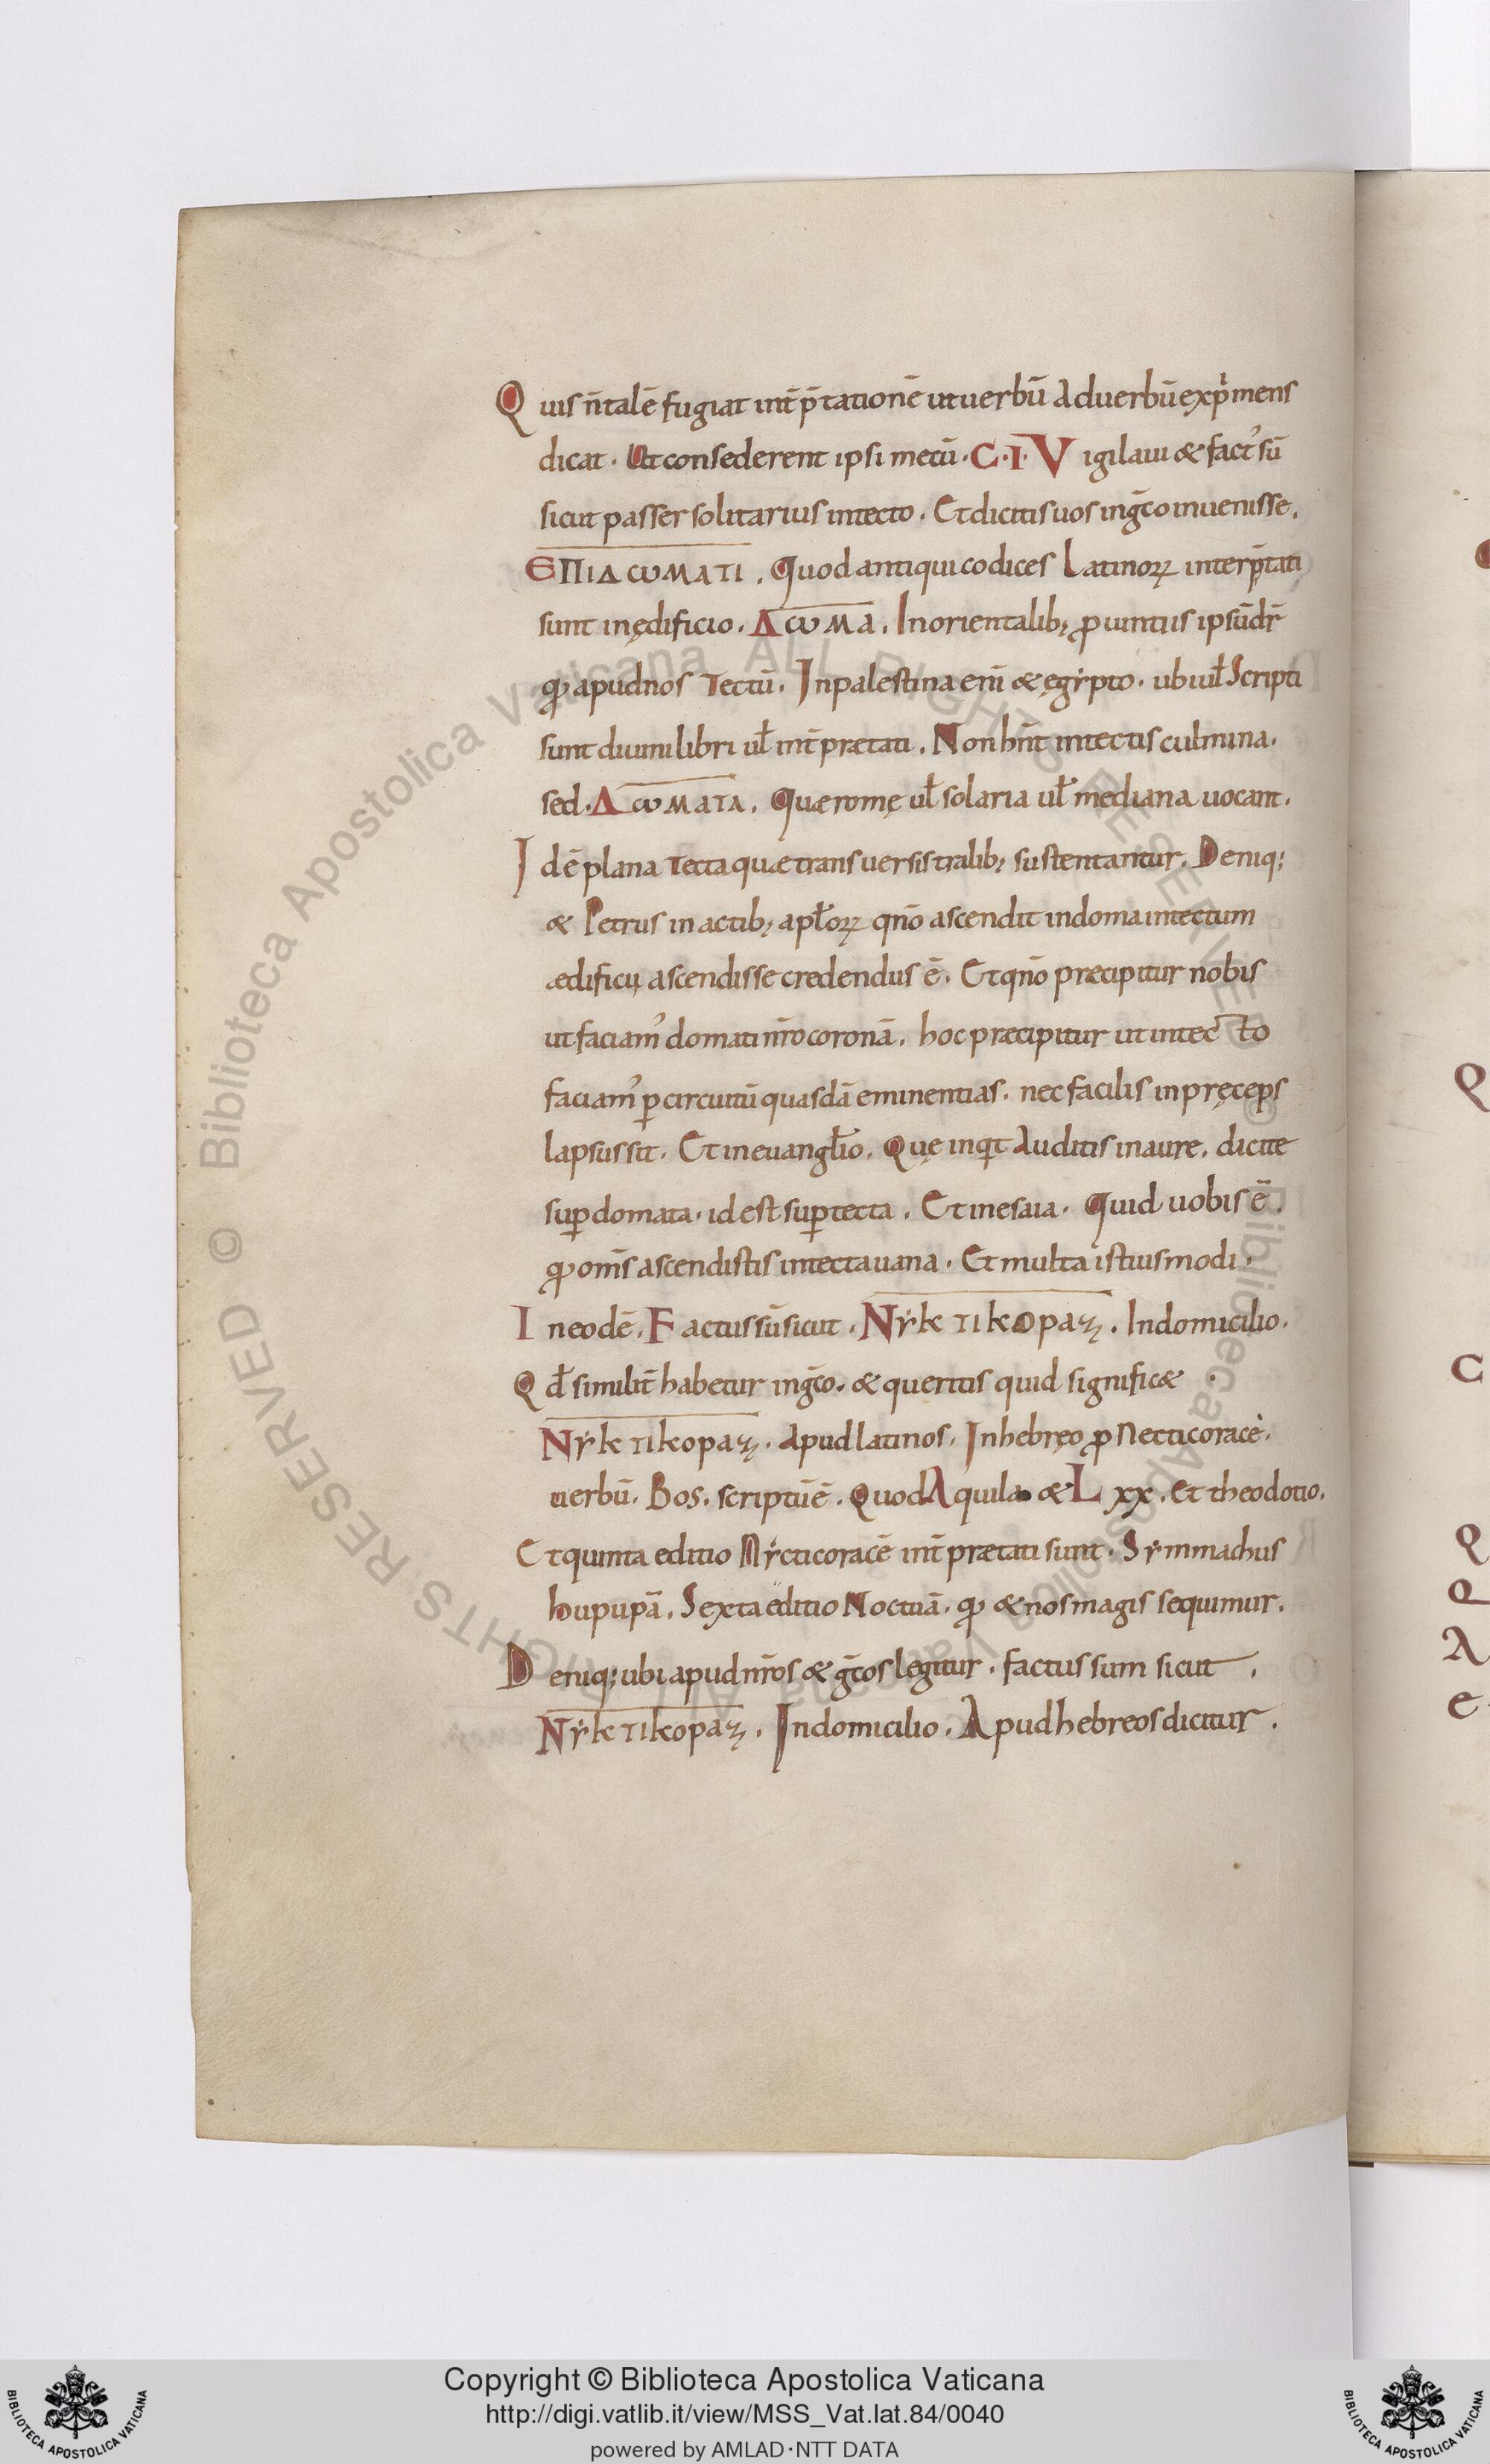 Quis n̄ talē fugiat int̄p̄tationē ut uerbū ad uerbū exp̍mens
dicat. Ut consederent ipsi mecū. C.I. Vigilaui & fact᾽ sū
sicut passer solitarius in tecto. Et dicitis uos in gr̄co inuenisse.
ЄΠΙΔωΜΑΤΙ. Quod antiqui codices Latinoꝝ interp̄tati
sunt in ędificio. ΔωΜΑ. In orientalibꝫ ꝓuintiis ipsūdr̄
qđ apud nos tectū. In palestina enī & ęgẏpto. ubi ul̄ Scripti
sunt diuini libri ul̄ int̄prætati. Non hn̄t in tectis culmina.
sed. ΔωΜΑΤΑ. Quæ romę ul̄ solaria ul̄ mediana uocant.
Idē plana tecta quæ transuersis tralibꝫ sustentantur. Deniq;
& Petrus in actibꝫ apl̄oꝝ qn̄o ascendit in doma in tectum
ædificii ascendisse credendus ē. Et qn̄o præcipitur nobis
ut faciam᾽ domati nr̄o coronā. hoc præcipitur ut in tecto
faciam᾽ ꝑ circuitū quasdā eminentias. nec facilis in pręceps
lapsus sit. Et in euangl̄io. Quę inqͥt Auditis in aure. dicite
suꝑ domata. id est suꝑ tecta. Et in esaia. Quid uobis ē.
qđ om̄s ascendistis in tecta uana. Et multa istiusmodi.
In eodē. Factus sū sicut. Nẏκτικοραξ. In domicilio.
Qd̄ similit̄ habetur in gr̄co. & queritis quid significæ
Nẏκτικοραξ. Apud latinos. In hebręo ꝓ Necticoracē.
uerbū. Bos. scriptū ē. Quod Aquila & Lxx. Et theodotio.
Et quinta editio Nẏcticoracē int̄prætati sunt. Sẏmmachus
hupupā. Sexta editio Noctuā. qđ & nos magis sequimur.
Deniq; ubi apud nr̄os & gr̄cos legitur. factus sum sicut.
Nẏκτικοραξ. In domicilio. Apud hebreos dicitur.
Q
C
Q
A
e
© Biblioteca Apostolica Vaticana ALL RIGHTS RESERVED
BIBLIOTECA APOSTOLICA VATICANA
Copyright © Biblioteca Apostolica Vaticana
http://digi.vatlib.it/view/MSS_Vat.lat.84/0040
powered by AMLAD·NTT DATA
BIBLIOTECA APOSTOLICA VATICANA